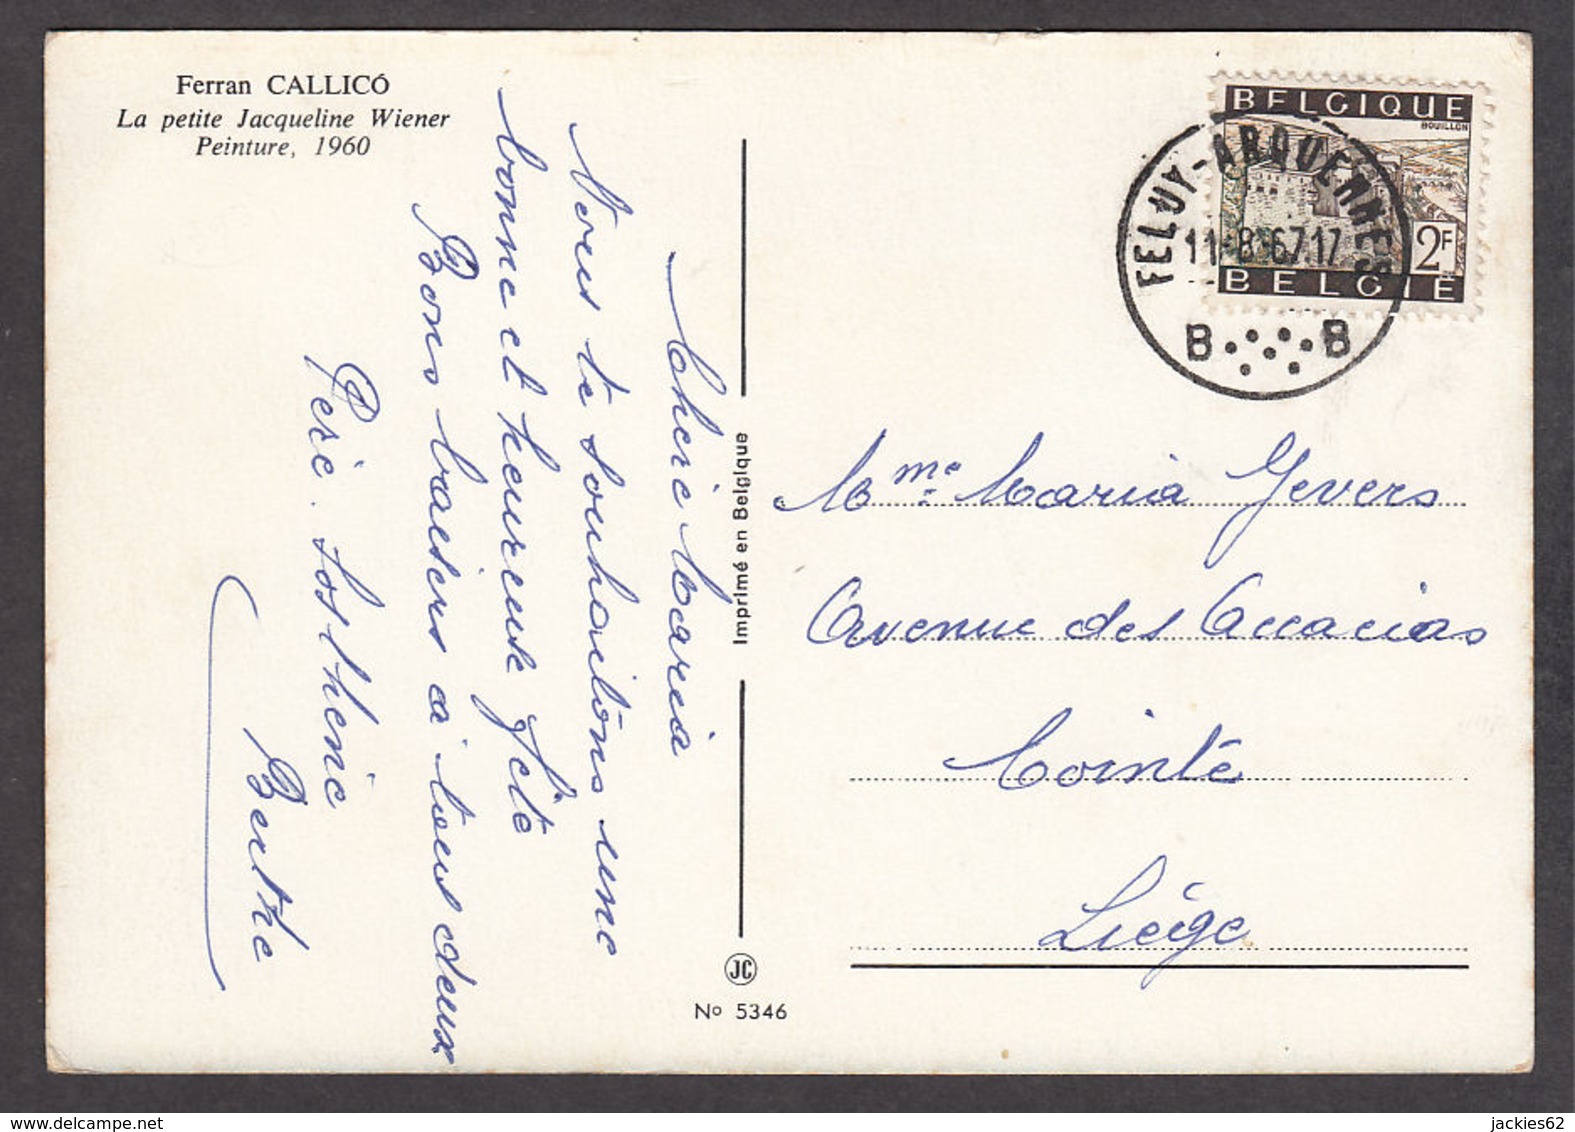 Ferran CALLICÓ
La petite Jacqueline Wiener
Peinture, 1960
Chérie Maria
Nous te souhaitons une
bonne et heureuse fête
Bons baisers à tous deux
Sosthène
Berthe
Imprimé en Belgique
JC
No 5346
BELGIQUE
BOUILLON
2F
BELGIË
FELUY-ARQUENNES
11-8-67.17
B B
Mme Maria Gevers
Avenue des Accacias
Cointe
Liége
jackies62